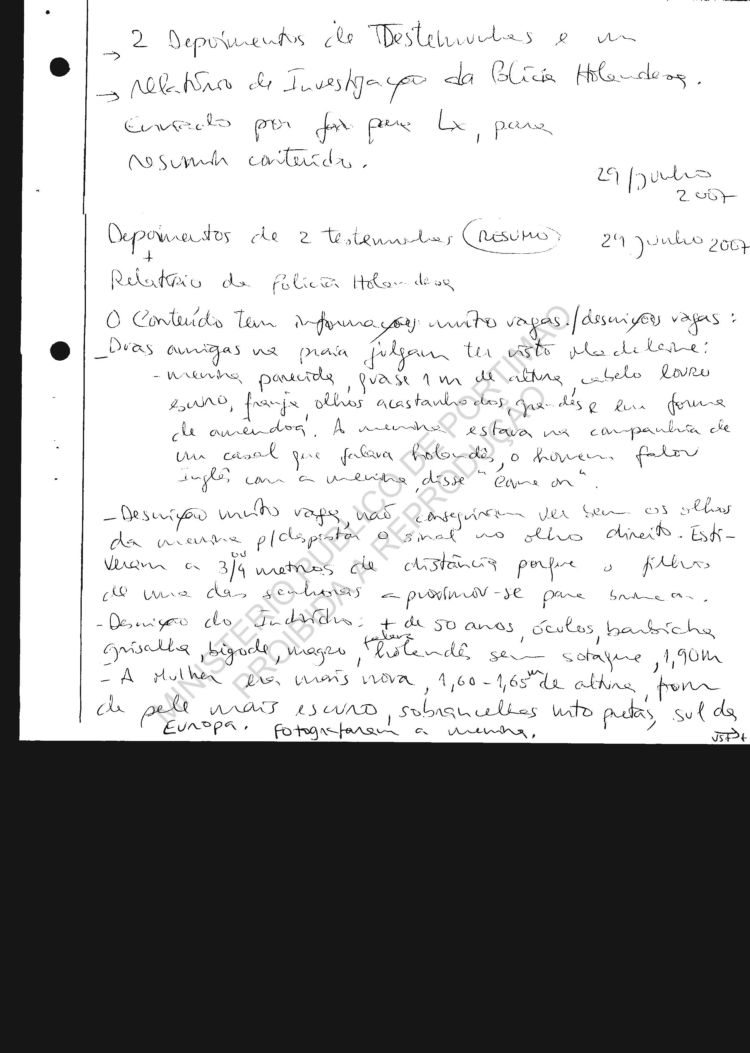 → 2 Depoimentos de Testemunhas e um
→ relatório de Investigação da Polícia Holandesa.
Enviado por fax para Lx, para
resumir conteúdo.
29/Junho
2007
Depoimentos de 2 testemunhas (RESUMO) 29 Junho 2007
+
Relatório da Polícia Holandesa
O Conteúdo tem informações muito vagas./descrições vagas:
_Duas amigas na praia julgam ter visto Madeleine:
- menina parecida, quase 1 m de altura, cabelo louro
escuro, franja, olhos acastanhados, grandes e em forma
de amêndoa. A menina estava na companhia de
um casal que falava holandês, o homem falou
inglês com a menina, disse "Come on".
- Descrição muito vaga, não conseguiram ver bem os olhos
da menina p/despistar o sinal no olho direito. Esti-
veram a 3/ou 4 metros de distância porque o filho
de uma das senhoras aproximou-se para brincar.
- Descrição do Indivíduo: + de 50 anos, óculos, barbicha
grisalha, bigode, magro, falava holandês sem sotaque, 1,90m
- A Mulher era mais nova, 1,60-1,65m de altura,
de pele mais escura, sobrancelhas mto pretas, sul da
Europa. Fotografaram a menina.
MINISTÉRIO PÚBLICO DE PORTIMÃO
PROIBIDA A REPRODUÇÃO